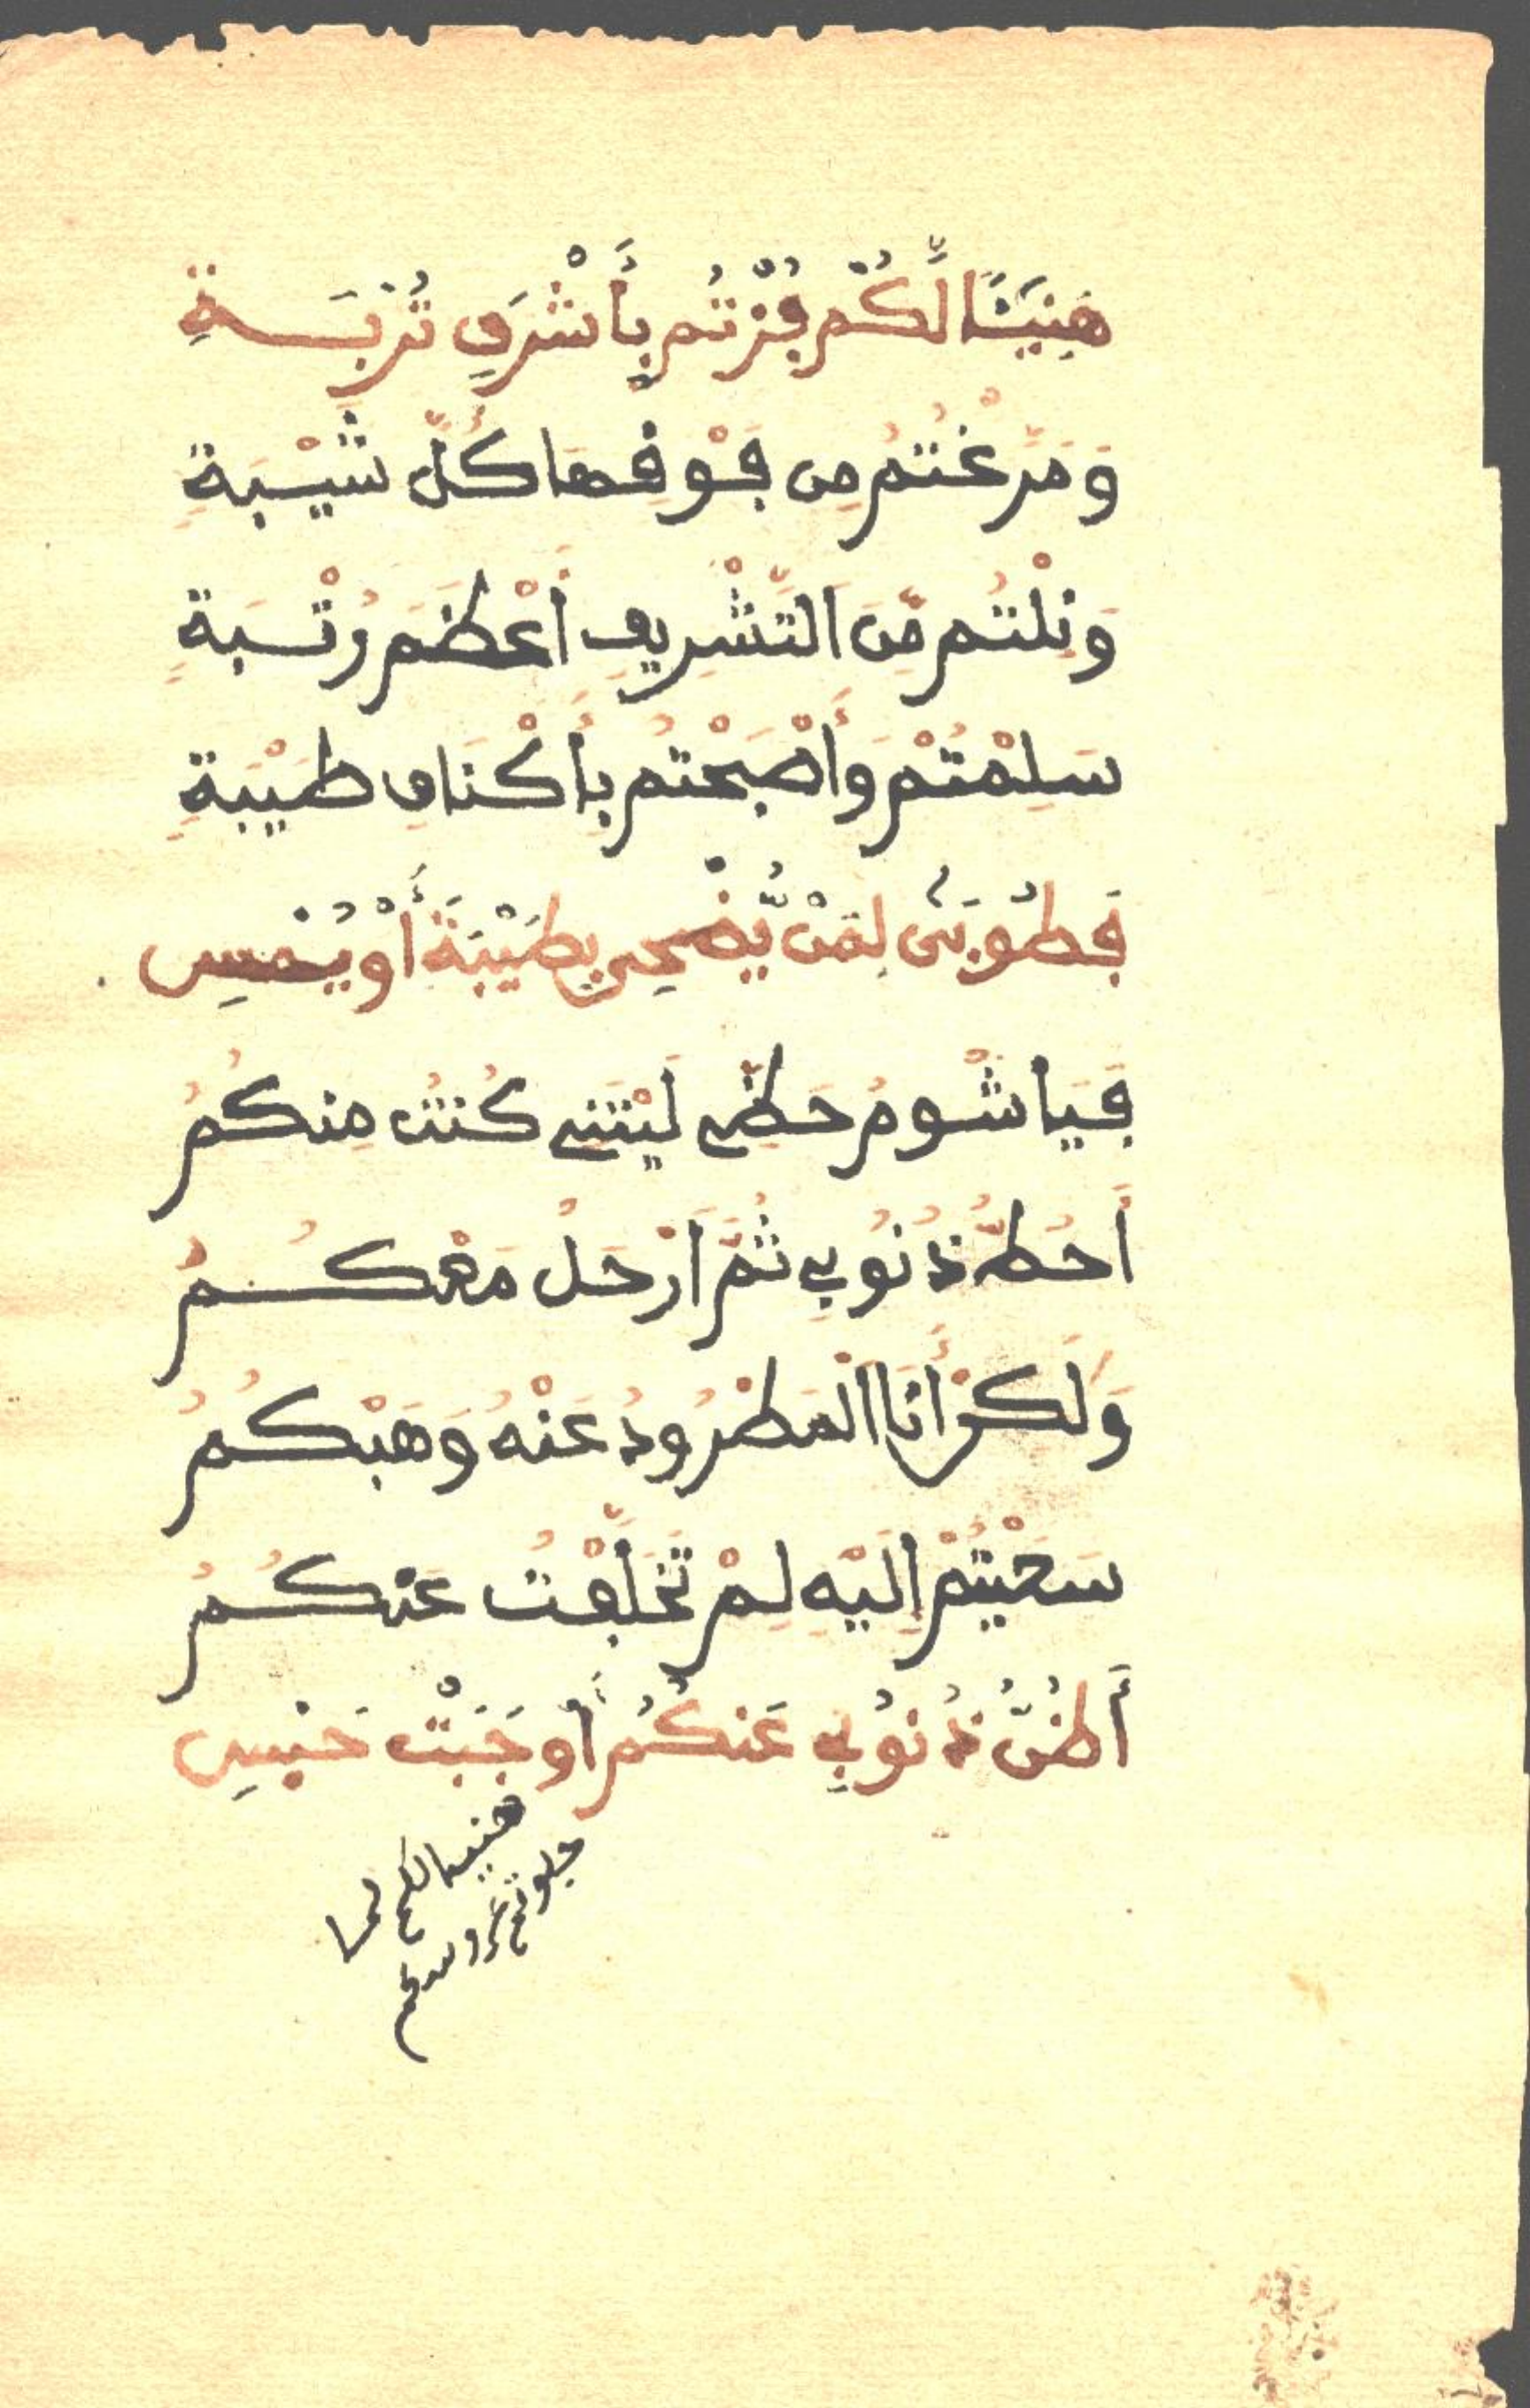 هَنِيئًا لَّكُمْ فُزْتُم بِأَشْرَفِ تُرْبَةِ
وَمَرَّغْتُمُ مِن فَوْقِهَا كُلَّ شَيْبَةِ
وَنِلْتُم مِّنَ التَّشْرِيفِ أَعْظَمَ رُتْبَةِ
سَلِمْتُمْ وَأَصْبَحْتُم بِأَكْنَافِ طَيْبَةِ
فَطُوبَىٰ لِمَنْ يُّضْحِي بِطَيْبَةَ أَوْ يُمْسِ
فَيَا شُومُ حَظِّي لَيْتَنِي كُنتُ مِنكُمُ
أَحُطُّ ذُنُوبِي ثُمَّ أَرْحَلُ مَعْكُمُ
وَلَكِنْ أَنَا الْمَطْرُودُ عَنْهُ وَهَبْكُمُ
سَعَيْتُمْ إِلَيْهِ لِمْ تَخَلَّفْتُ عَنكُمُ
أَظُنُّ ذُنُوبِي عَنكُمُ أَوجَبَتْ حَبْسِ
هنيا لكم لما